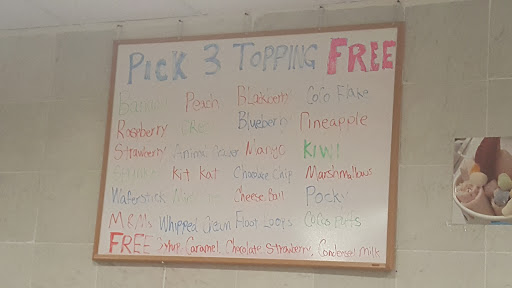 PICK 3 TOPPING FREE
Banana Peach Blackberry CoCo Flake
Raspberry Oreo Blueberry Pineapple
Strawberry Animal Mango KIWI
Kit Kat Chocolate Chip Marshmallows
Waferstick Cheese Ball Pocky
M&Ms Whipped Cream Froot Loops CoCo Puffs
FREE Syrup: Caramel, Chocolate Strawberry, Condensed Milk